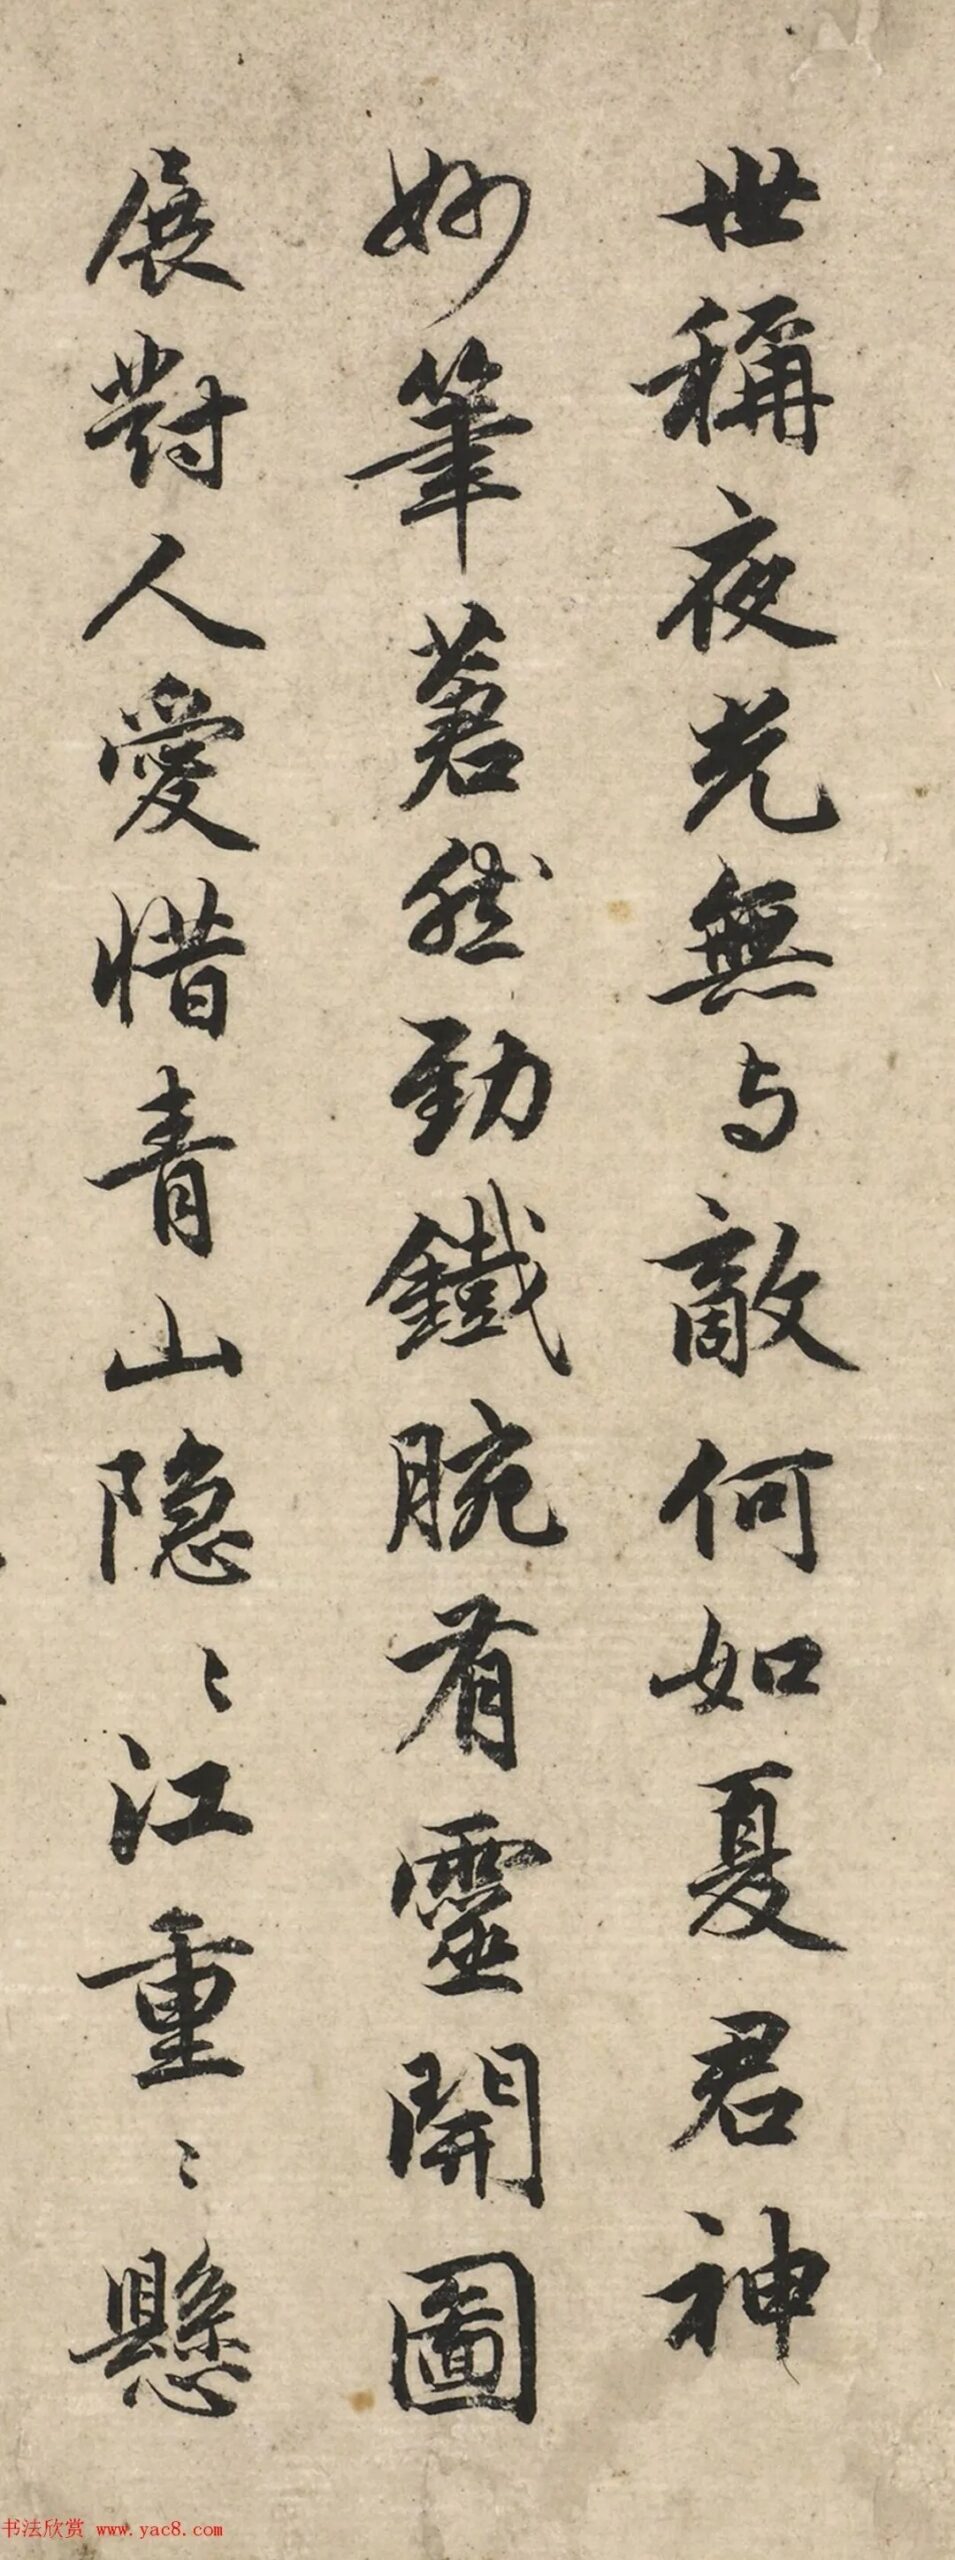 世稱夜光無与敵何如夏君神
妙筆蒼然勁鐵腕有靈開圖
展對人愛惜青山隐〻江重〻懸
书法欣赏 www.yac8.com